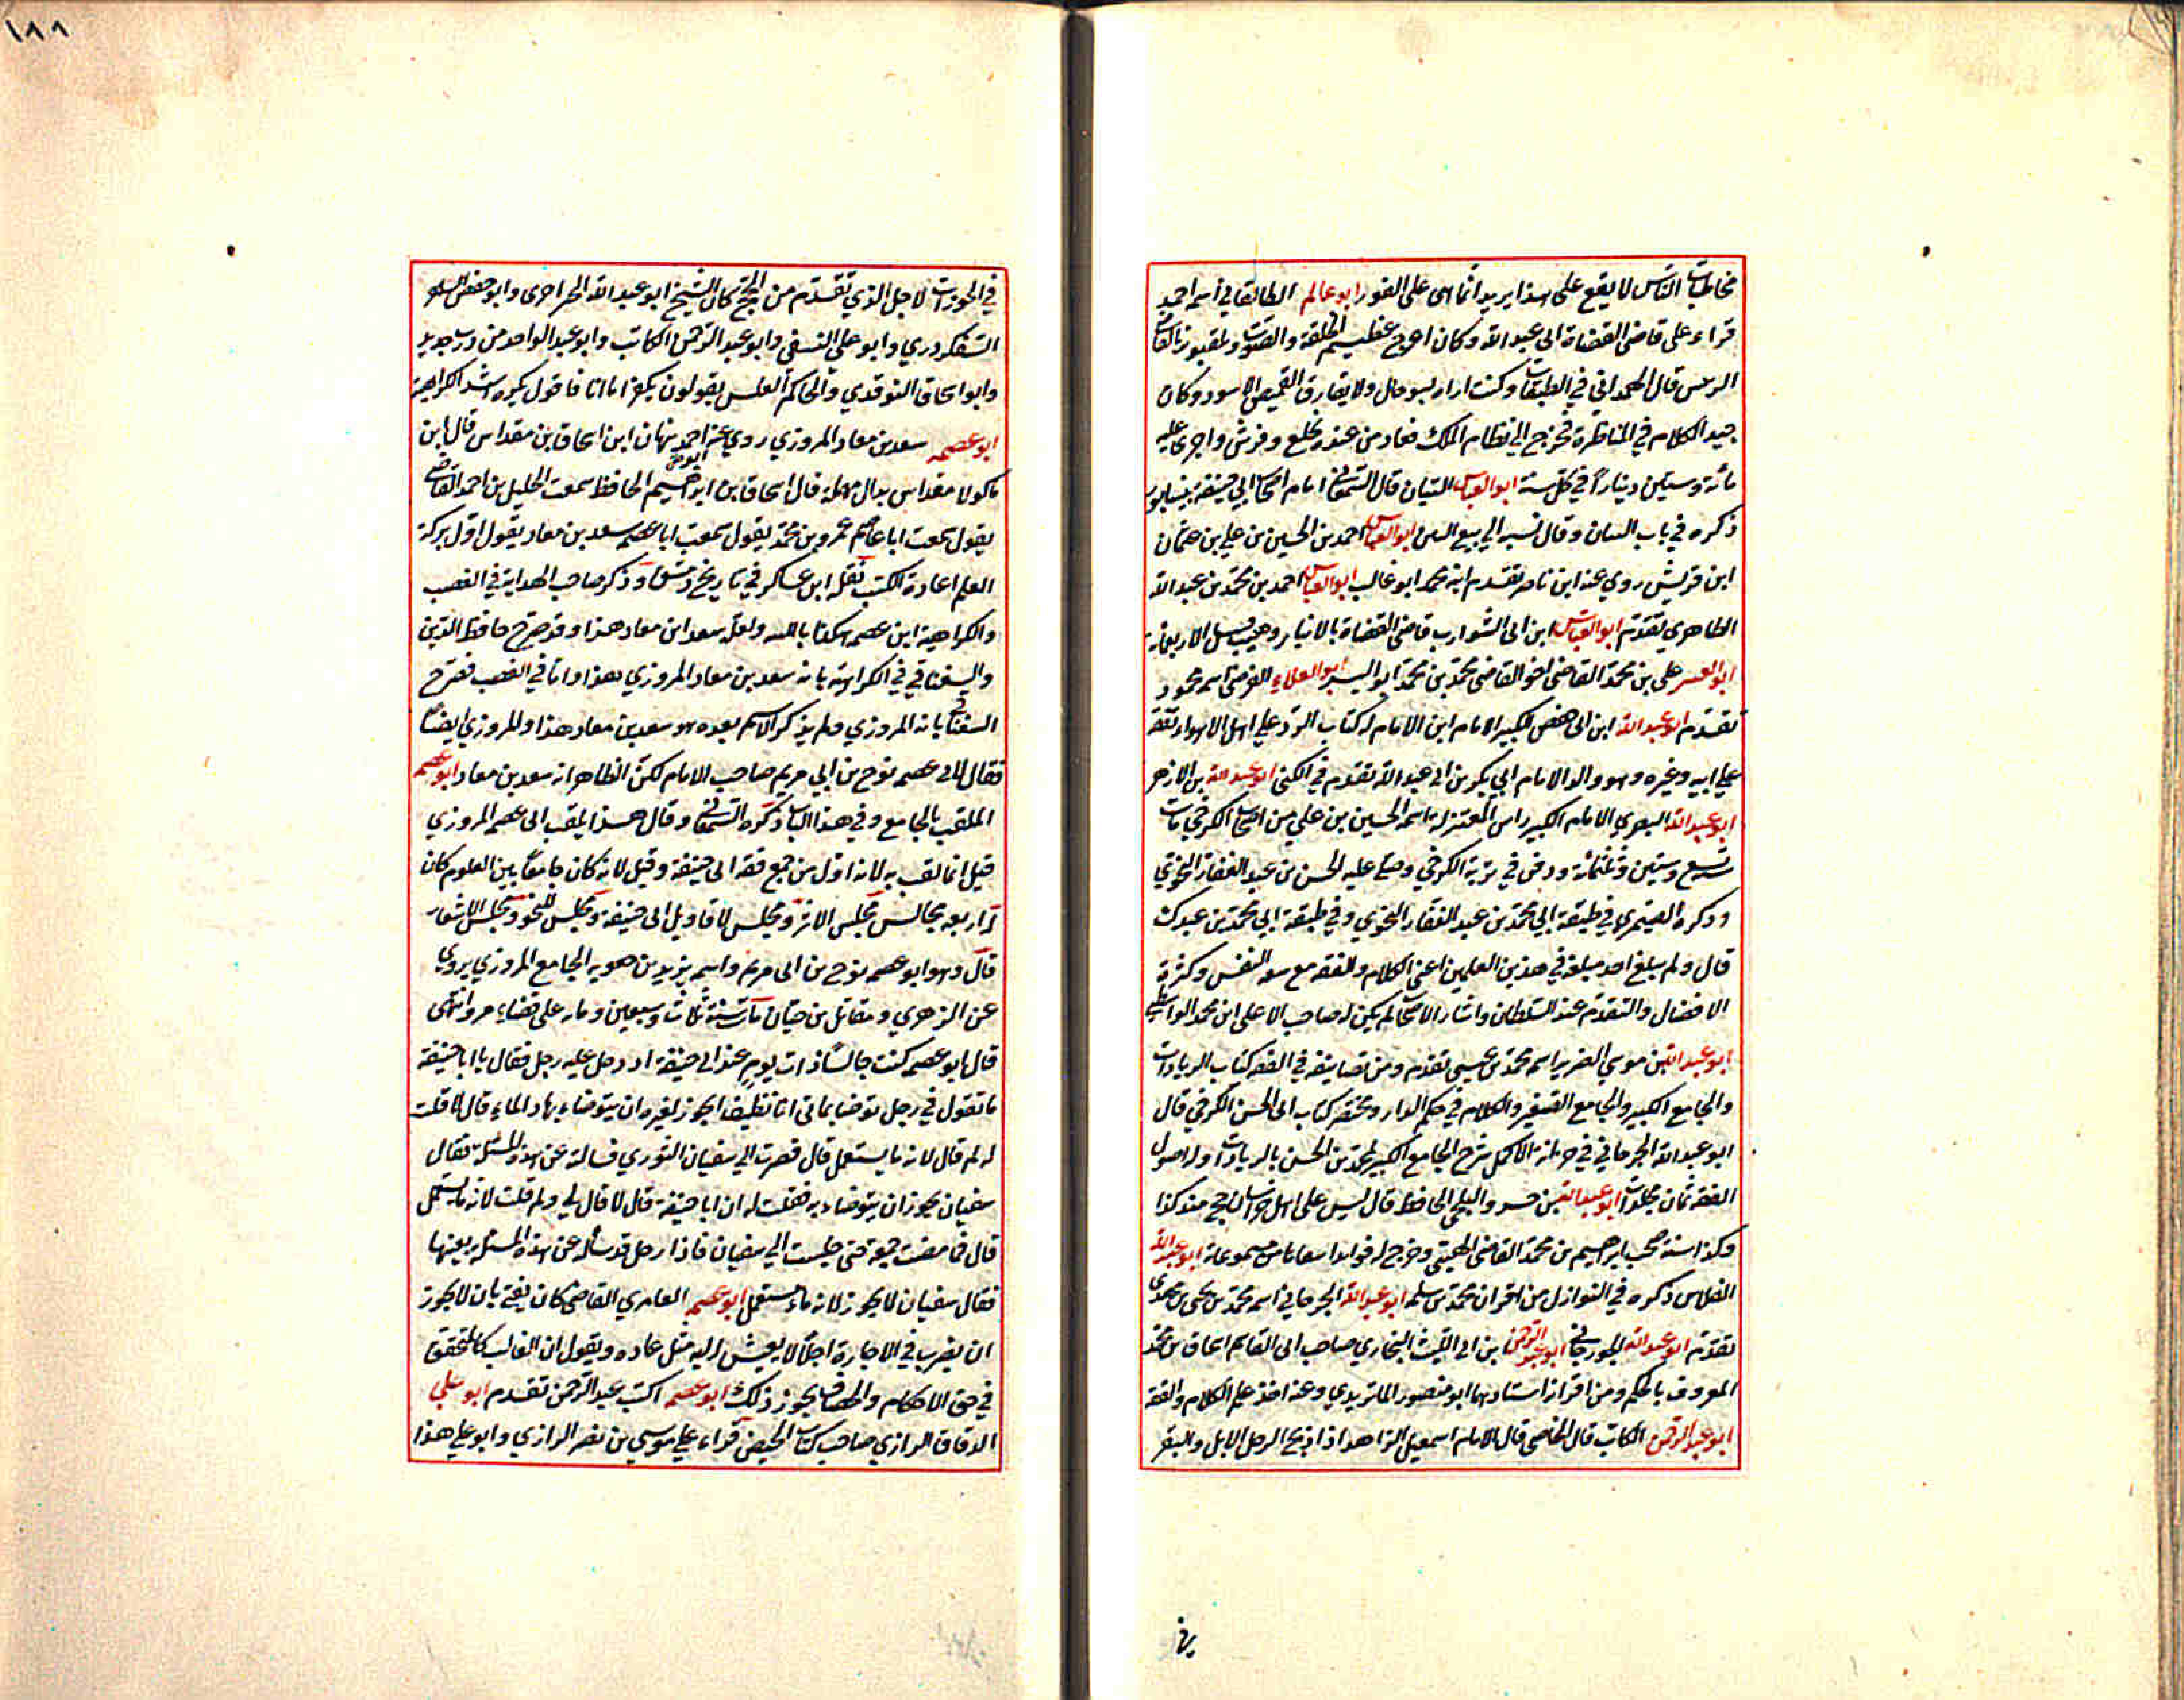 مخاطبات الناس لا يقع على هذا يريد انما هي على الفور ابو عالم الطالقاني اسمه احمد
قراء على قاضي القضاة ابي عبد الله وكان اعرج عظيم الخلقة والصوت ويلقبونه
الريس قال الهمداني في الطبقات وكنت اراه ولا يفارق القميص الاسود وكان
جيد الكلام في المناظرة فخرج الى نظام الملك فعاد من عنده وخلع وفرش واجرى عليه
مائة وستين دينارا في كل سنة ابو العباس التبان قال السمعاني امام اصحاب ابي حنيفة بنيسابور
ذكره في باب التبان وقال نسبه الى بيع التبن ابو العباس احمد بن الحسين بن علي بن عثمان
ابن قريش روي عنه ابن ناصر تقدم ابنه محمد ابو غالب ابو العباس احمد بن محمد بن عبد الله
الطاهري تقدم ابو العباس ابن ابي الشوارب قاضي القضاة بالانبار وهيت قبل الاربعمائة
ابو العسر علي بن محمد القاضي اخو القاضي محمد بن محمد ابو اليسر ابو العلاء الفرضي اسمه محمود
تقدم ابو عبد الله ابن ابي حفص الكبير الامام ابن الامام له كتاب الرد على اهل الاهواء تفقه
على ابيه وغيره وهو والد الامام ابي بكر بن ابي عبد الله تقدم في الكنى ابو عبد الله بن الازهر
ابو عبد الله البصري الامام الكبير راس المعتزلة اسمه الحسين بن علي من اصحاب الكرخي مات
تسع وستين وثلثمائة ودفن في تربة الكرخي وصلى عليه الحسن بن عبد الغفار النحوي
وذكره الصيمري في طبقة ابي محمد بن عبد الغفار النحوي وفي طبقة ابي محمد بن عبدك
قال ولم يبلغ احد مبلغه في هذين العلمين اعني الكلام والفقه مع سعه النفس وكثرة
الافضال والتقدم عند السلطان وانشاء الاصحاب لم يكن له صاحب الا على ابن محمد الواسطي
ابو عبد الله بن موسى الضرير اسمه محمد بن عيسى تقدم ومن تصانيفه في الفقه كتاب الزيادات
والجامع الكبير والجامع الصغير والكلام في حكم الدار ومختصر كتاب ابي الحسن الكرخي قال
ابو عبد الله الجرجاني في خزانة الاكمل شرح الجامع الكبير لمحمد بن الحسن بالزيادات وله اصول
الفقه ثمان مجلدات ابو عبد الله بن خسرو البلخي الحافظ قال ليس على اهل خراسان حج منذ كذا
وكذا سنة صحب ابراهيم بن محمد القاضي الهيتي وخرج له فوايد من مسموعاته ابو عبد الله
الفلاس ذكره في النوازل من اقران محمد بن سلمه ابو عبد الله الجرجاني اسمه محمد بن يحيى بن مهدي
تقدم ابو عبد الله الجوزجاني ابو عبد الرحمن بن ابي الليث البخاري صاحب ابي القاسم اسحاق بن محمد
المعروف بالحكيم ومن اقرانه استادهما ابو منصور الماتريدي وعنه اخذ علم الكلام والفقه
ابو عبد الرحمن الكاتب قال القاضي قال الامام اسمعيل الزاهد اذا ذبح الرجل الابل والبقر
١٨٨
في الجوزات لاجل الذي تقدم من الحج كان الشيخ ابو عبد الله الخراخري وابو حفص
السفكردري وابو علي النسفي وابو عبد الرحمن الكاتب وابو عبد الواحد من درب جديد
وابو اسحاق النوقدي والحاكم يقولون يكفر اما انا فاقول يكره اشد الكراهية
ابو عصمه سعد بن معاد المروزي روي عنه احمد نبهان ابن اسحاق بن مقداس قال ابن
ماكولا مقداس بدال مهملة قال اسحاق بن ابراهيم الحافظ سمعت الخليل بن احمد القاضي
يقول سمعت ابا عاصم عمرو بن محمد يقول سمعت ابا عصمه سعد بن معاد يقول اول بركة
العلم اعادة الكتب نقله ابن عساكر في تاريخ دمشق وذكر صاحب الهداية في الغصب
والكراهية ابن عصمه هكذا ولعله سعد ابن معاد هذا وقد صرح حافظ الدين
والسغناقي في الكراهة بانه سعد بن معاد المروزي هذا واما في الغصب فصرح
السغناقي بانه المروزي ولم يذكر الاسم بعده هو سعد بن معاد هذا والمروزي ايضا
فقال لابي عصمه نوح بن ابي مريم صاحب الامام لكن الظاهر انه سعد بن معاد ابو عصمه
الملقب بالجامع وفي هذا الباب ذكره السمعاني وقال هذا لقب ابي عصمه المروزي
قيل انما لقب به لانه اول من جمع فقه ابي حنيفة وقيل لانه كان جامعا بين العلوم كان
له اربعه مجالس مجلس الاثر ومجلس لاقاويل ابي حنيفة ومجلس للنحو ومجلس للاشعار
قال وهو ابو عصمه نوح بن ابي مريم واسمه يزيد بن جعويه الجامع المروزي يروي
عن الزهري ومقاتل بن حيان مات سنة ثلاث وسبعين ومائه على قضاء مرو انتهى
قال ابو عصمه كنت جالسا ذات يوم عند ابي حنيفة اد دخل عليه رجل فقال يا ابا حنيفة
ما تقول في رجل توضا بماء في اناء نظيف ايجوز لغيره ان يتوضاء بهاد الماء قال لا قلت
له لم قال لانه ماء مستعمل قال فصرت الى سفيان الثوري فسالته عن هذه المسئلة فقال
سفيان يجوز ان يتوضاء به فقلت له ان ابا حنيفة قال لا قال لي ولم قلت لانه ماء مستعمل
قال فما مضت جمعة حتى جلست الى سفيان فاذا رجل قد ساله عن هذه المسئلة بعينها
فقال سفيان لا يجوز لانه ماء مستعمل ابو عصمه العامري القاضي كان يفتي بان لا يجوز
ان يضرب في الاجارة اجلا لا يعيش اليه مثله عاده ويقول ان الغالب كالمتحقق
في حق الاحكام والخصاف يجوز ذلك ابو عصمه اكتب عبد الرحمن تقدم ابو علي
الدقاق الرازي صاحب كتاب الحيض قراء علي موسى بن نصر الرازي وابو علي هذا
في